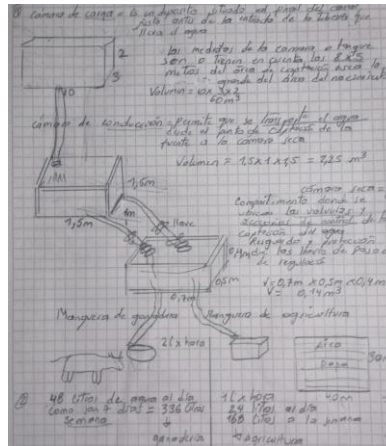 cámara de carga = es un deposito situado al final del canal
justo antes de la entrada de la tubería que
lleva el agua
las medidas de la cámara o tanque
son o tienen en cuenta las 8x5
metros del área de captación
grande del área del nacimiento
2
3
10
Volumen = 10x3x2
60m³
cámara de conducción = permite que se transporte el agua
desde el punto de captación de la
fuente a la cámara seca
Volumen = 1,5x1x1,5 = 2,25 m³
1,5m
1m
1,5m
llave
cámara seca =
Compartimento donde se
ubican las valvulas y
accesorios de control de la
captación del agua
Resguardo y protección
las llaves de paso
de registro
0,5m
0,7m
V=0,7m x0,5m x0,4m
V= 0,14m³
Manguera de ganaderia
Manguera de agricultura
2L x hora
Area
30m
40m
48 litros de agua al día
como son 7 dias = 336 litros
semana
ganaderia
1L x hora
24 litros al día
168 litros a la semana
agricultura